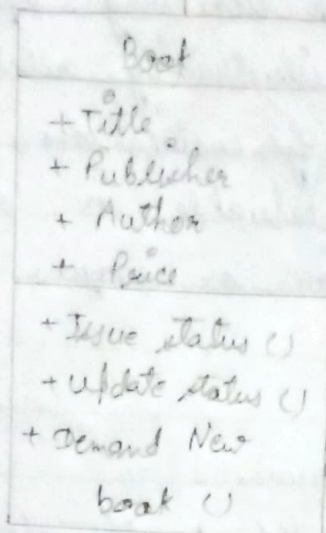 Book
+ Title
+ Publisher
+ Author
+ Price
+ Issue status ()
+ update status ()
+ Demand New
book ()